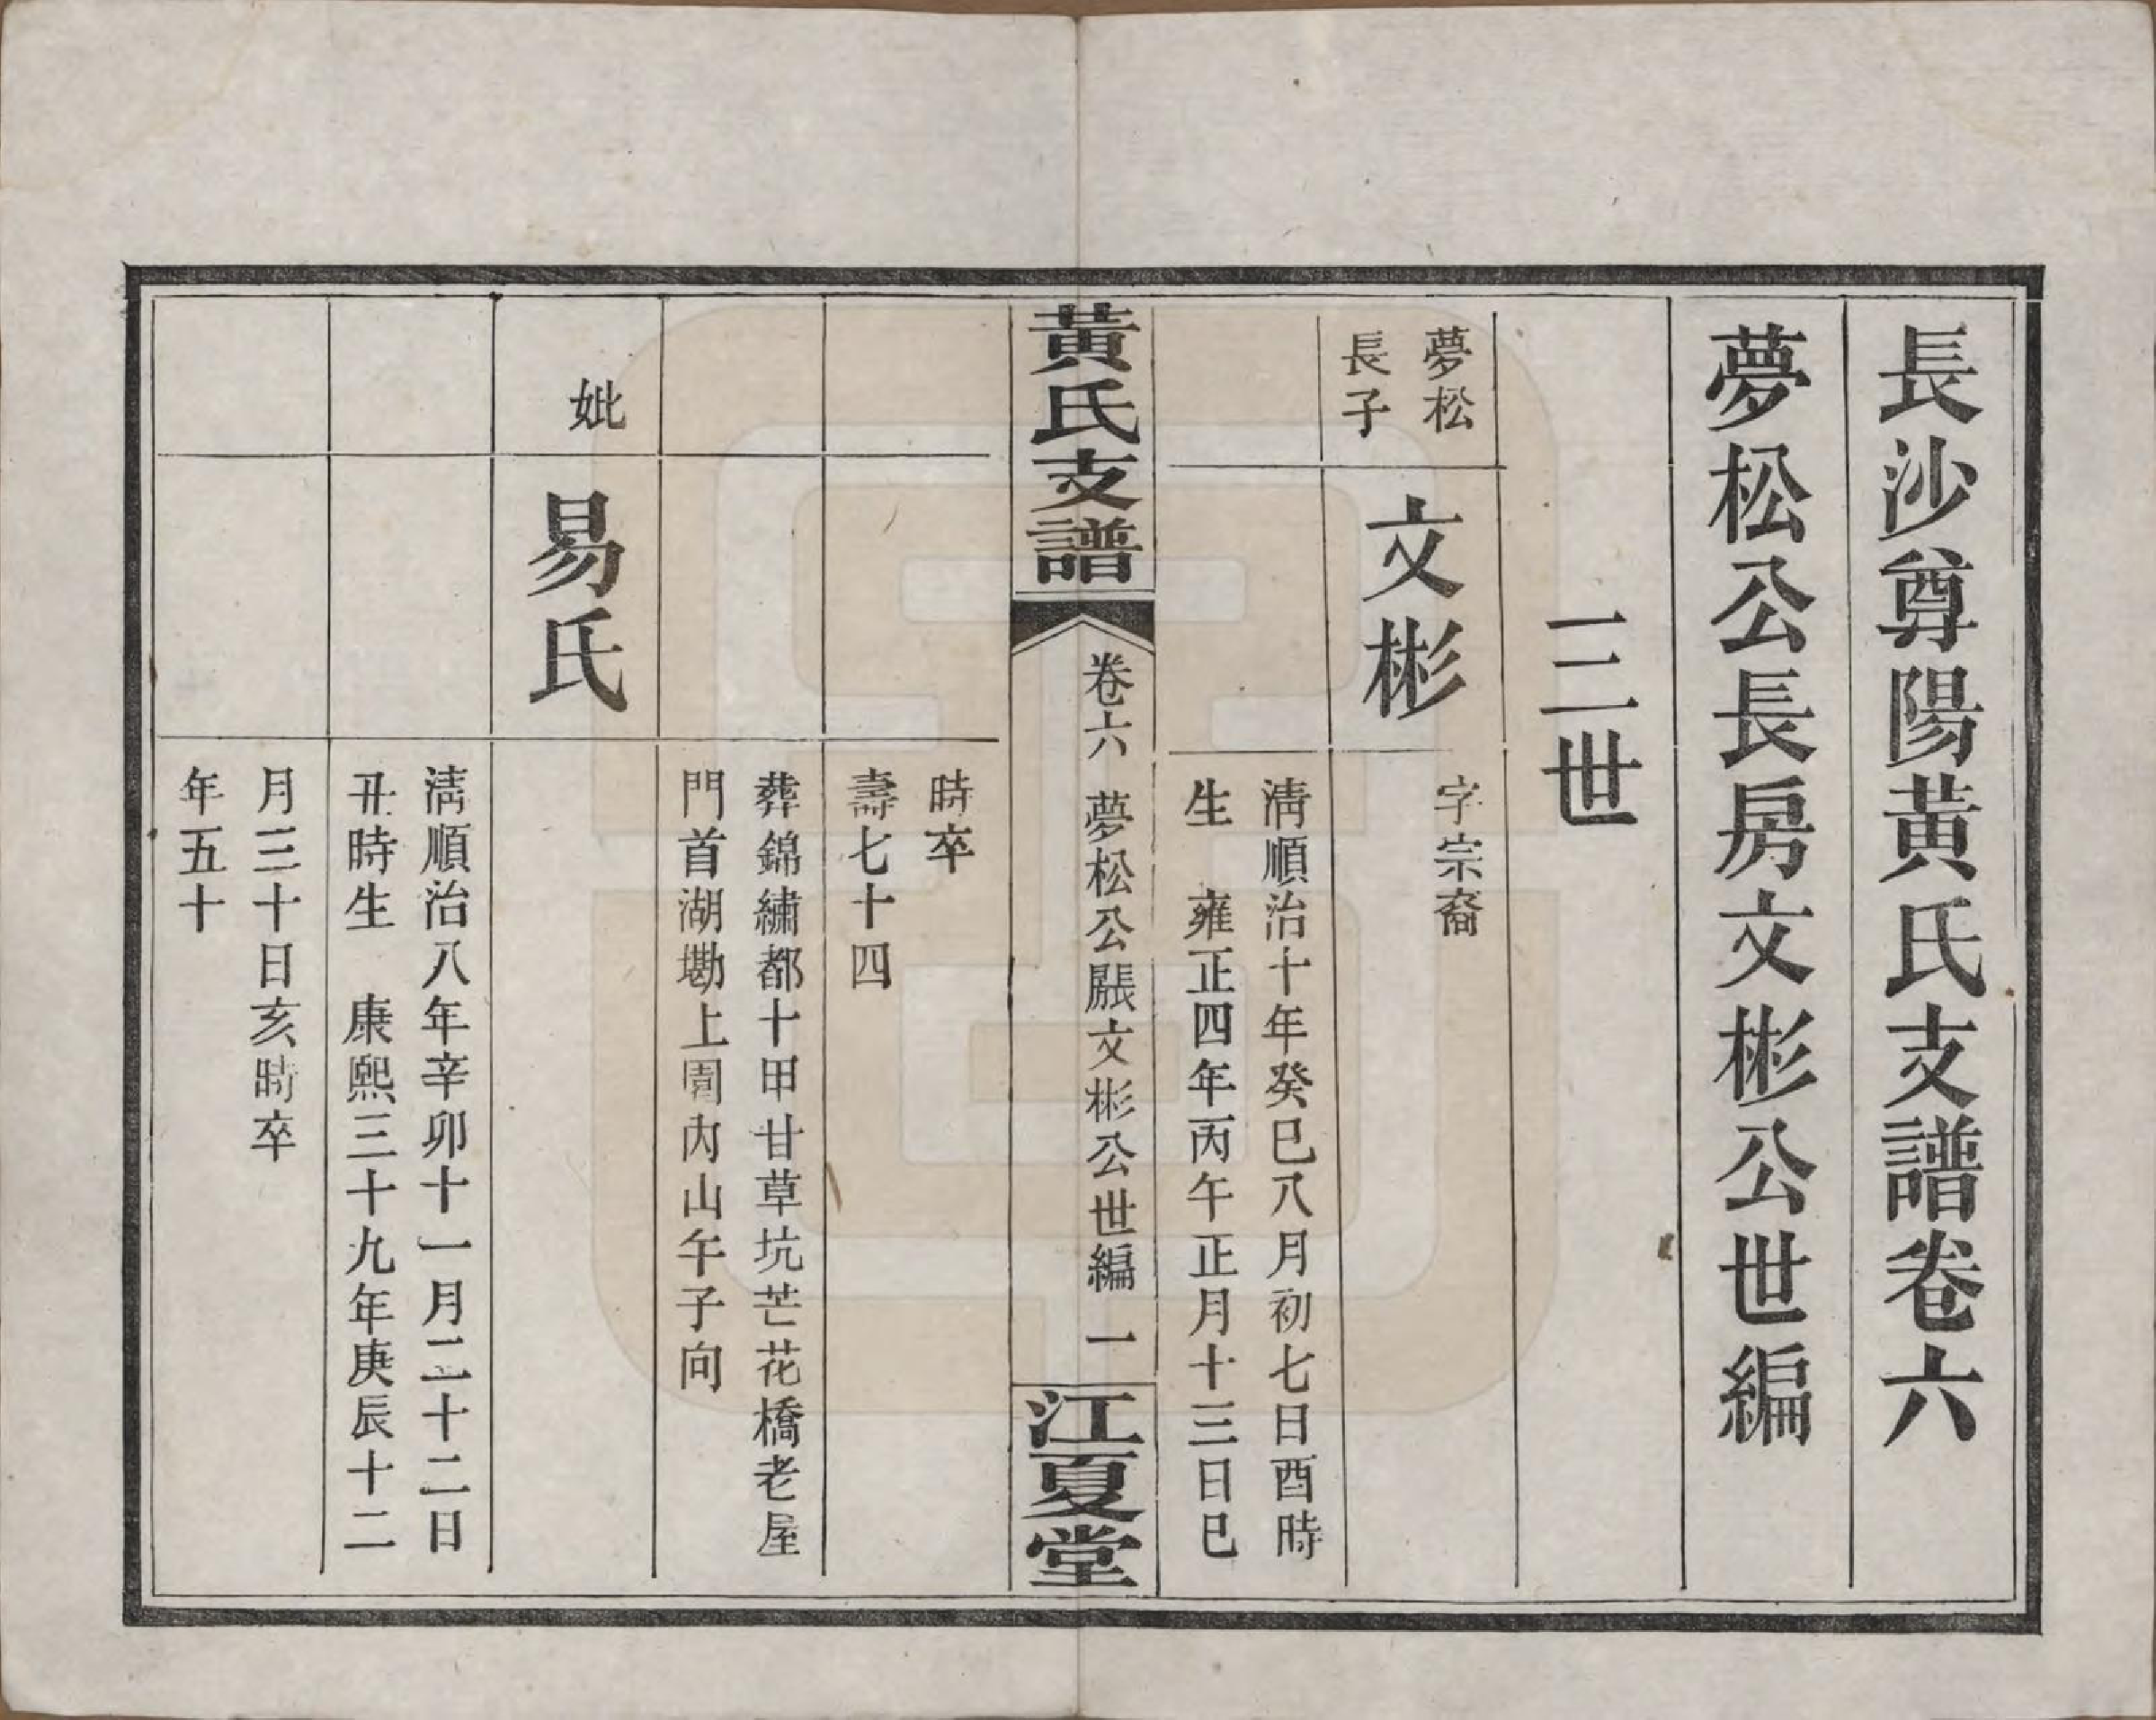 長沙尊陽黃氏支譜卷六
夢松公長房文彬公世編
三世
夢松
長子
文彬
字宗裔
淸順治十年癸巳八月初七日酉時
生　雍正四年丙午正月十三日巳
黃氏支譜
卷六　夢松公房長文彬公世編　一
江夏堂
時卒
壽七十四
葬錦繡都十甲甘草坑芒花橋老屋
門首湖墈上圍內山午子向
妣
易氏
淸順治八年辛卯十一月二十二日
丑時生　康熙三十九年庚辰十二
月三十日亥時卒
年五十